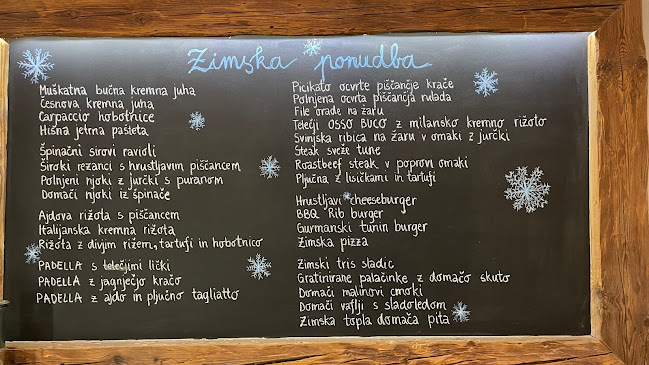 Zimska ponudba
Muškatna bučna kremna juha
Česnova kremna juha
Carpaccio hobotnice
Hišna jetrna pašteta
Špinačni sirovi ravioli
Široki rezanci s hrustljavim piščancem
Polnjeni njoki z jurčki s puranom
Domači njoki iz špinače
Ajdova rižota s piščancem
Italijanska kremna rižota
Rižota z divjim rižem, tartufi in hobotnico
PADELLA s telečjimi lički
PADELLA z jagnječjo kračo
PADELLA z ajdo in pljučno tagliatto
Picikato ocvrte piščančje krače
Polnjena ocvrta piščančja rulada
File orade na žaru
Telečji OSSO BUCO z milansko kremno rižoto
Svinjska ribica na žaru v omaki z jurčki
Steak sveže tune
Roastbeef steak v poprovi omaki
Pljučna z lisičkami in tartufi
Hrustljavi cheeseburger
BBQ Rib burger
Gurmanski tunin burger
Zimska pizza
Zimski tris sladic
Gratinirane palačinke z domačo skuto
Domači malinovi cmoki
Domači vaflji s sladoledom
Zimska topla domača pita